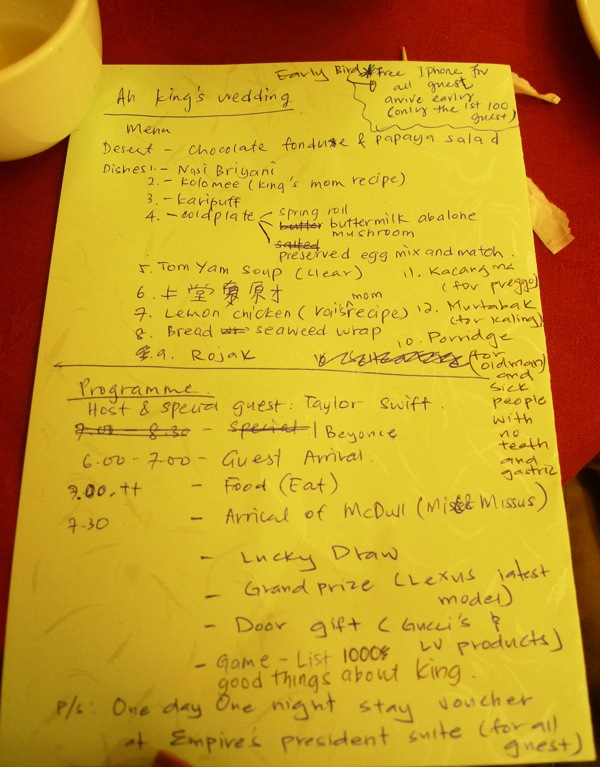 Early Bird * Free Iphone for
all guest
arrive earlry
(only the 1st 100
guest)
Ah king's wedding
Menu
Desert - Chocolate fonduse & papaya salad
Dishes: 1. - Nasi Briyani
2. - kolomee (king's mom recipe)
3. - karipuff
4. - coldplate
spring roll
butter buttermilk abalone
mushroom
salted
preserved egg mix and match.
5. Tom Yam Soup (clear)
6. 上堂 原才
7. Lemon chicken (rais mom recipe)
8. Bread seaweed wrap
9. Rojak
10. Porridge
(for oldman)
and
sick
people
with
no
teath
and
gastric
11. Kacang ma
(for preggo)
12. Murtabak
(for Kaling)
Programme
Host & special guest: Taylor Swift.
7.00 - 8.30 - Special / Beyonce
6.00 - 7.00 - Guest Arrival.
7.00.tt - Food (Eat)
7.30 - Arrival of McDull (Miss & Missus)
- Lucky Draw
- Grand prize (Lexus latest
model)
- Door gift (Gucci's &
LV products)
- Game - List 1000s
good things about king.
P/s: One day One night stay voucher
at Empire's president suite (for all
guest)